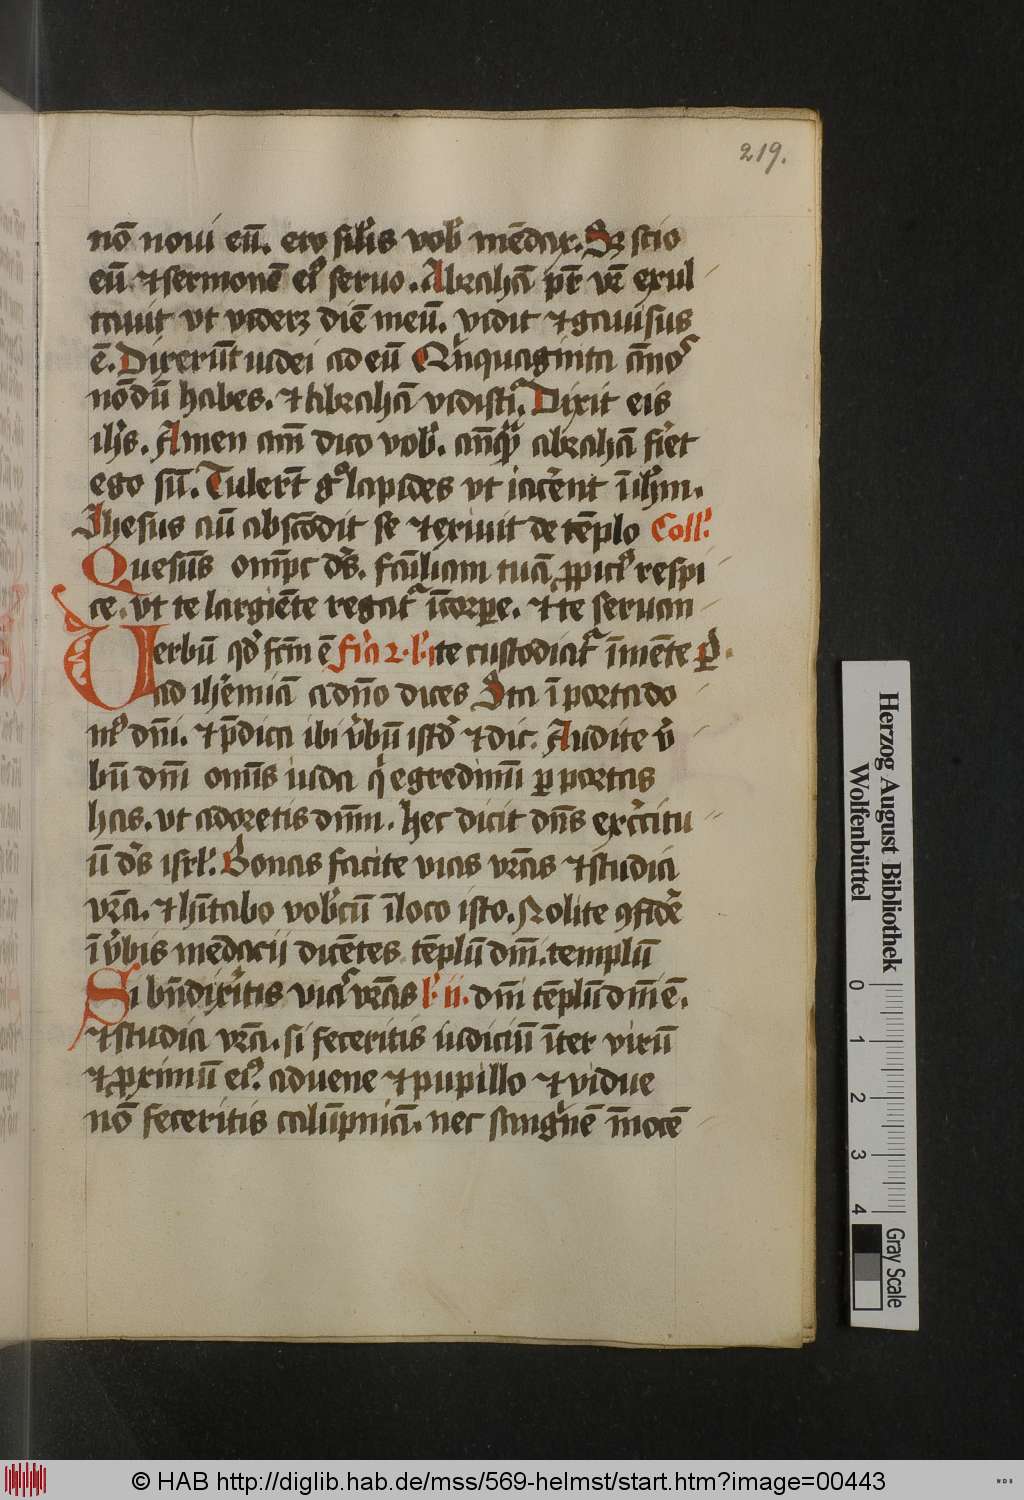 219.
nō novi eū. ero sil'is vob' mēdax. Sʒ scio
eū ⁊ sermonē ei' servo. Abrahā pr̄ vr̄ exul
tavit vt viderʒ diē meū. vidit ⁊ gavisus
ē. Dixerūt iudei ad eū Qi̇nquaginta ān̄or'
nōdū habes. ⁊ abrahā vidisti. Dixit eis
ih's. Amen am̄ dico vob'. an̄q̄ꝫ abrahā fi'et
ego sū. Tuler̄t g° lapides vt iacēent ī ih'm.
Jhesus aū abscōdit se ⁊ exivit de tēplo Coll'
Quesum̄s om̄pc d's. fam̄liam tuā ꝓpici' respi
ce. vt te largiēte regat' ī corpe. ⁊ te servan
te custodiat' ī mēte ꝑ.
Verbū qd' fcm̄ ē fi'a 2. l'i
ad ih'emiā a dn̄o dices Sta ī porta do
m' dn̄i. ⁊ p̄dica ibi v'bū istd' ⁊ dic. Audite v'
bū dn̄i om̄s iuda q' egredimī ꝑ portas
has. vt adoretis dn̄m. hec dicit dn̄s exercitu
ū d's isrl'. Bonas facite vias vr̄as ⁊ studia
vr̄a. ⁊ h'itabo vob'cū ī loco isto. Nolite ꝯfid'e
ī v'bis mēdacii dicētes tēplū dn̄i. templū
dn̄i tēplū dn̄i ē.
Si bn̄ dix'itis vias vr̄as l' ii.
⁊ studia vr̄a. si feceritis iudiciū īter virū
⁊ ꝓximū ei'. advene ⁊ pupillo ⁊ vidue
nō feceritis calūpniā. nec sangui̇nē īnocē
Herzog August Bibliothek
Wolfenbüttel
0 1 2 3 4
Gray Scale
© HAB http://diglib.hab.de/mss/569-helmst/start.htm?image=00443